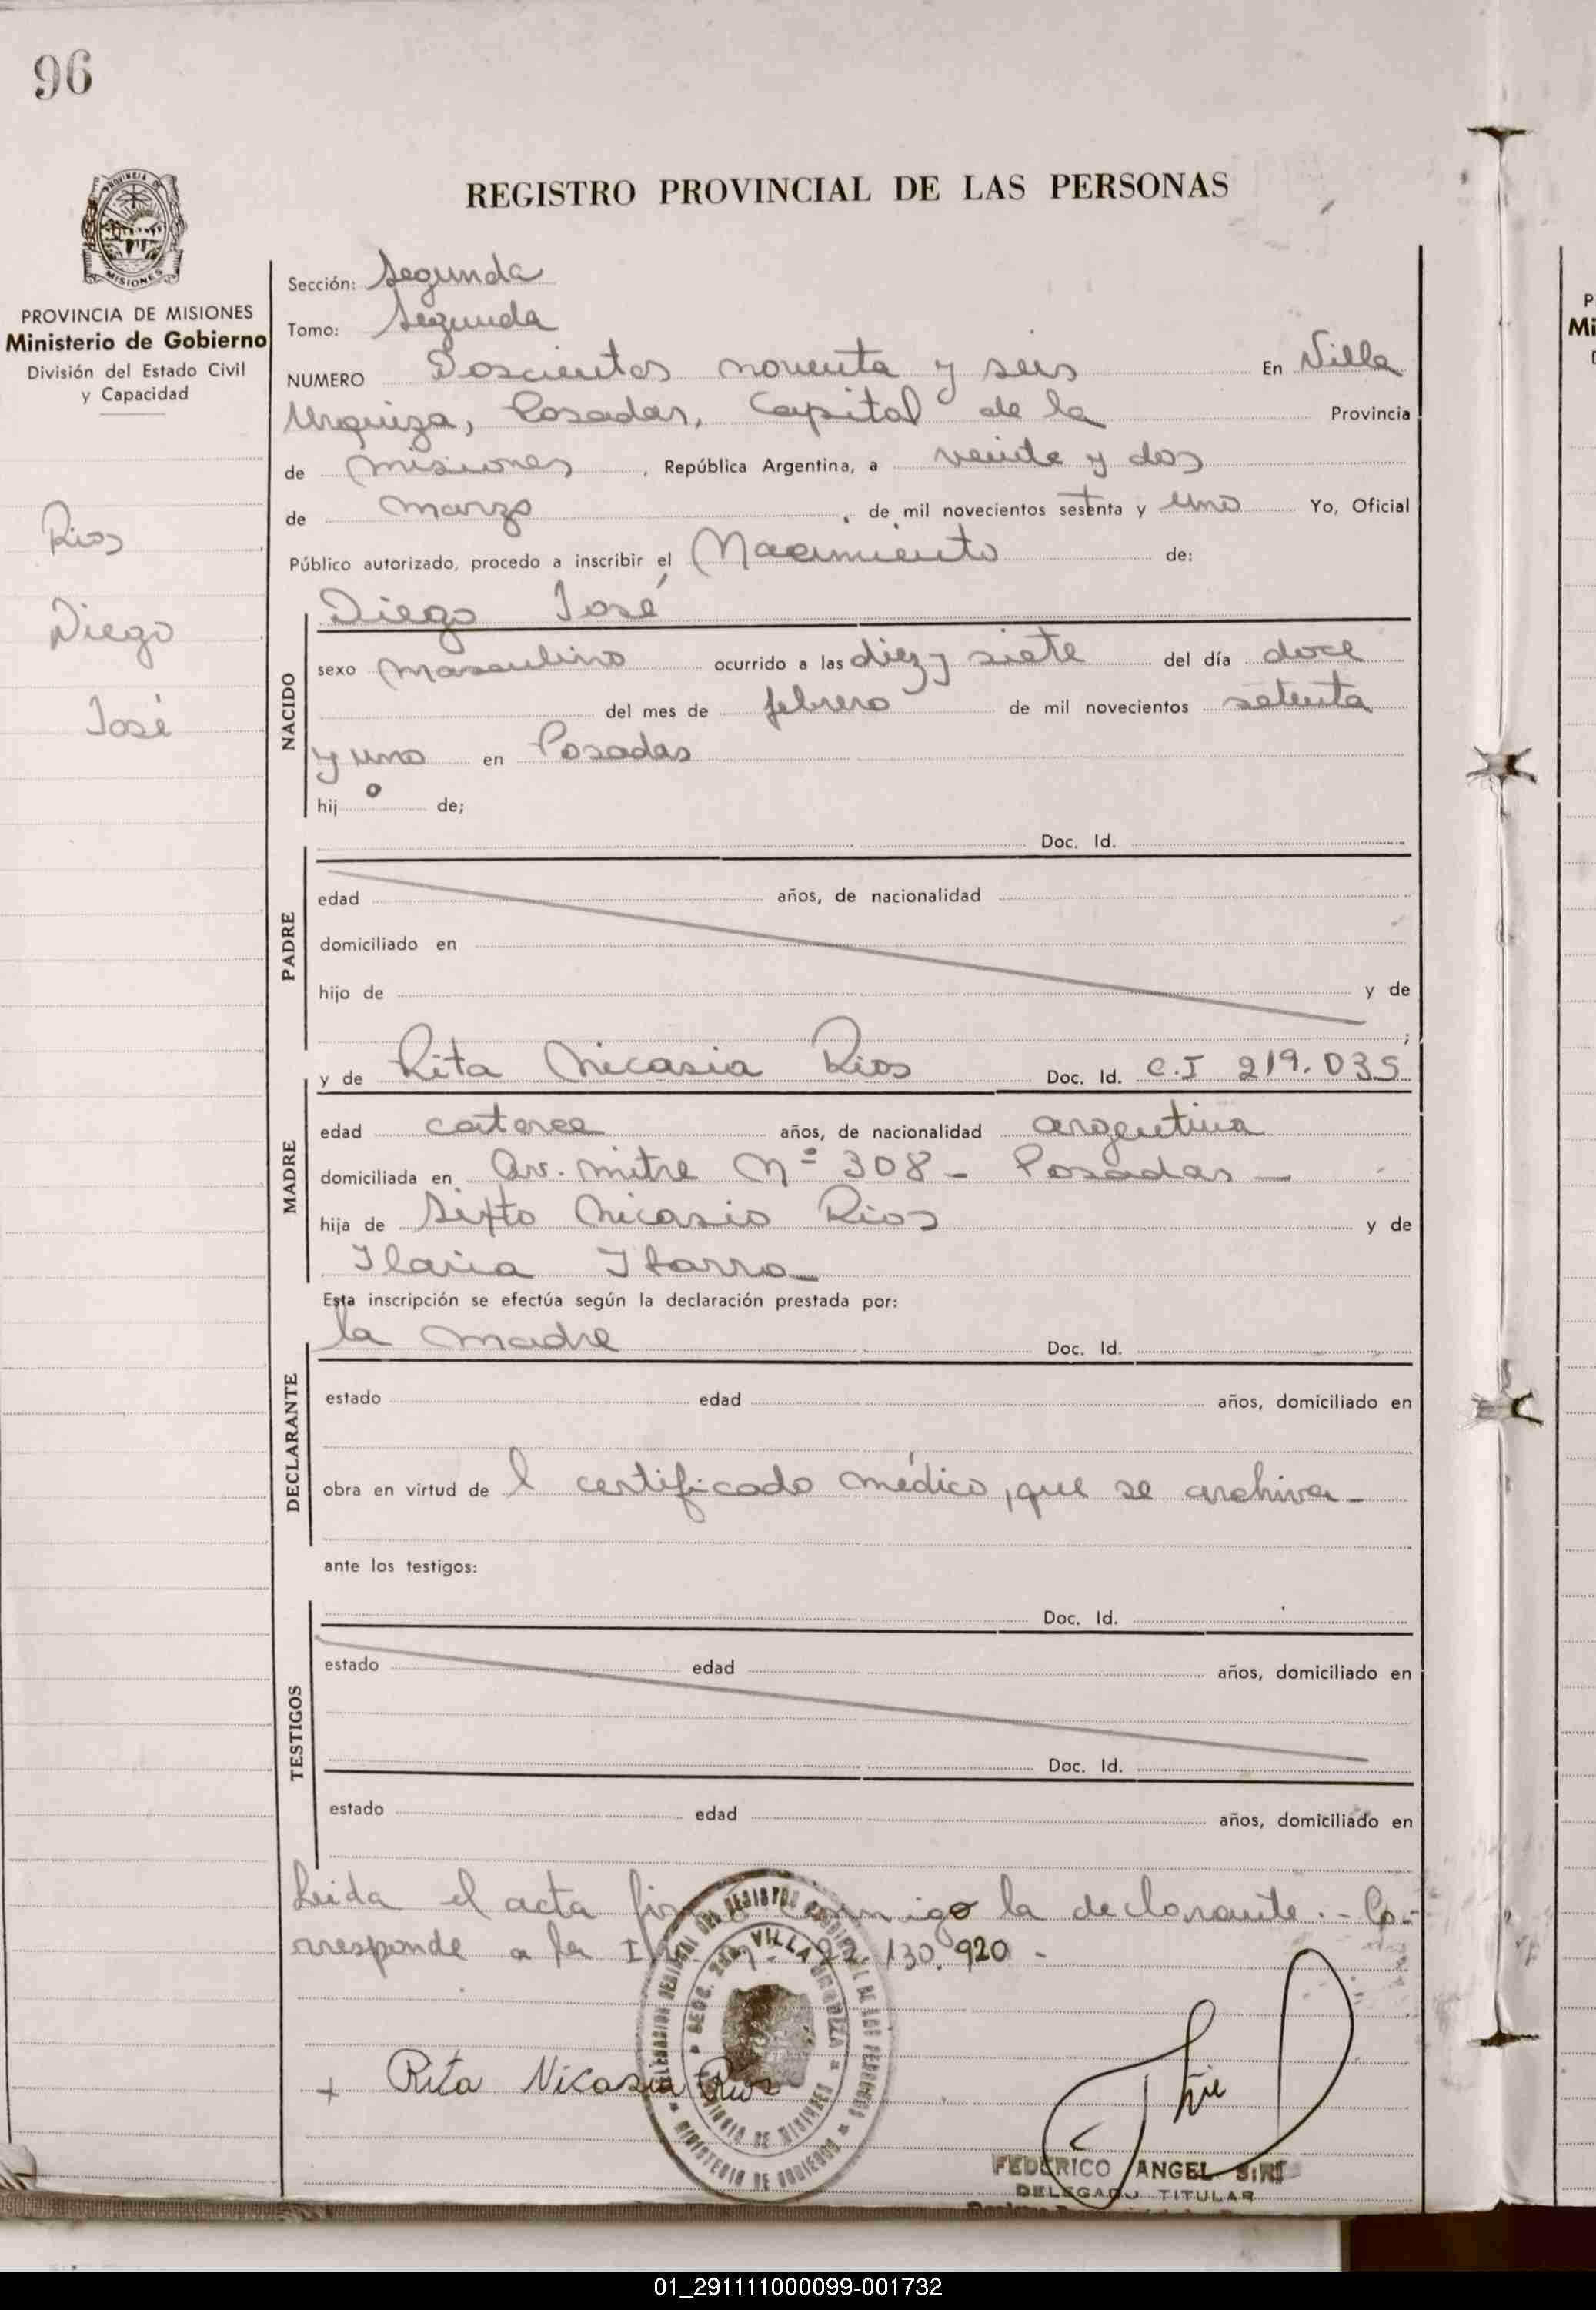 96
REGISTRO PROVINCIAL DE LAS PERSONAS
MISIONES
PROVINCIA DE MISIONES
Ministerio de Gobierno
División del Estado Civil
y Capacidad
Rios
Diego
José
Sección: Segunda
Tomo: Segunda
NUMERO Doscientos noventa y seis En Villa
Urquiza, Posadas, Capital de la Provincia
de misiones, República Argentina, a veinte y dos
de marzo, de mil novecientos setenta y uno Yo, Oficial
Público autorizado, procedo a inscribir el Nacimiento de:
Diego José
NACIDO
sexo masculino ocurrido a las diez y siete del día doce
del mes de febrero de mil novecientos setenta
y uno en Posadas
hij o de;
Doc. Id.
PADRE
edad años, de nacionalidad
domiciliado en
hijo de y de
;
y de Rita Nicasia Rios Doc. Id. C.I 219.035
MADRE
edad catorce años, de nacionalidad argentina
domiciliada en Av. mitre Nº 308 - Posadas -
hija de Sixto Nicasio Rios y de
Ilaria Ibarra
Esta inscripción se efectúa según la declaración prestada por:
la madre Doc. Id.
DECLARANTE
estado edad años, domiciliado en
obra en virtud de l certificado médico, que se archiva -
ante los testigos:
Doc. Id.
TESTIGOS
estado edad años, domiciliado en
Doc. Id.
estado edad años, domiciliado en
Leida el acta conmigo la declarante. - Co-
rresponde a la 22.130.920 -
SECC. 2DA. VILLA URQUIZA
MINISTERIO DE GOBIERNO
Rita Nicasia Rios
FEDERICO ANGEL
DELEGADO TITULAR
P
Mi
01_291111000099-001732